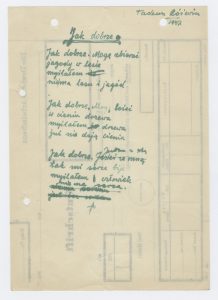 Tadeusz Różewicz
1947
Jak dobrze
Jak dobrze Mogę zbierać
jagody w lesie
myślałem
niema lasu i jagód
Jak dobrze Mogę leżeć
w cieniu drzewa
myślałem drzewa
już nie dają cienia
Jak dobrze Jestem z
tak mi serce bije
myślałem człowiek
nie ma serca